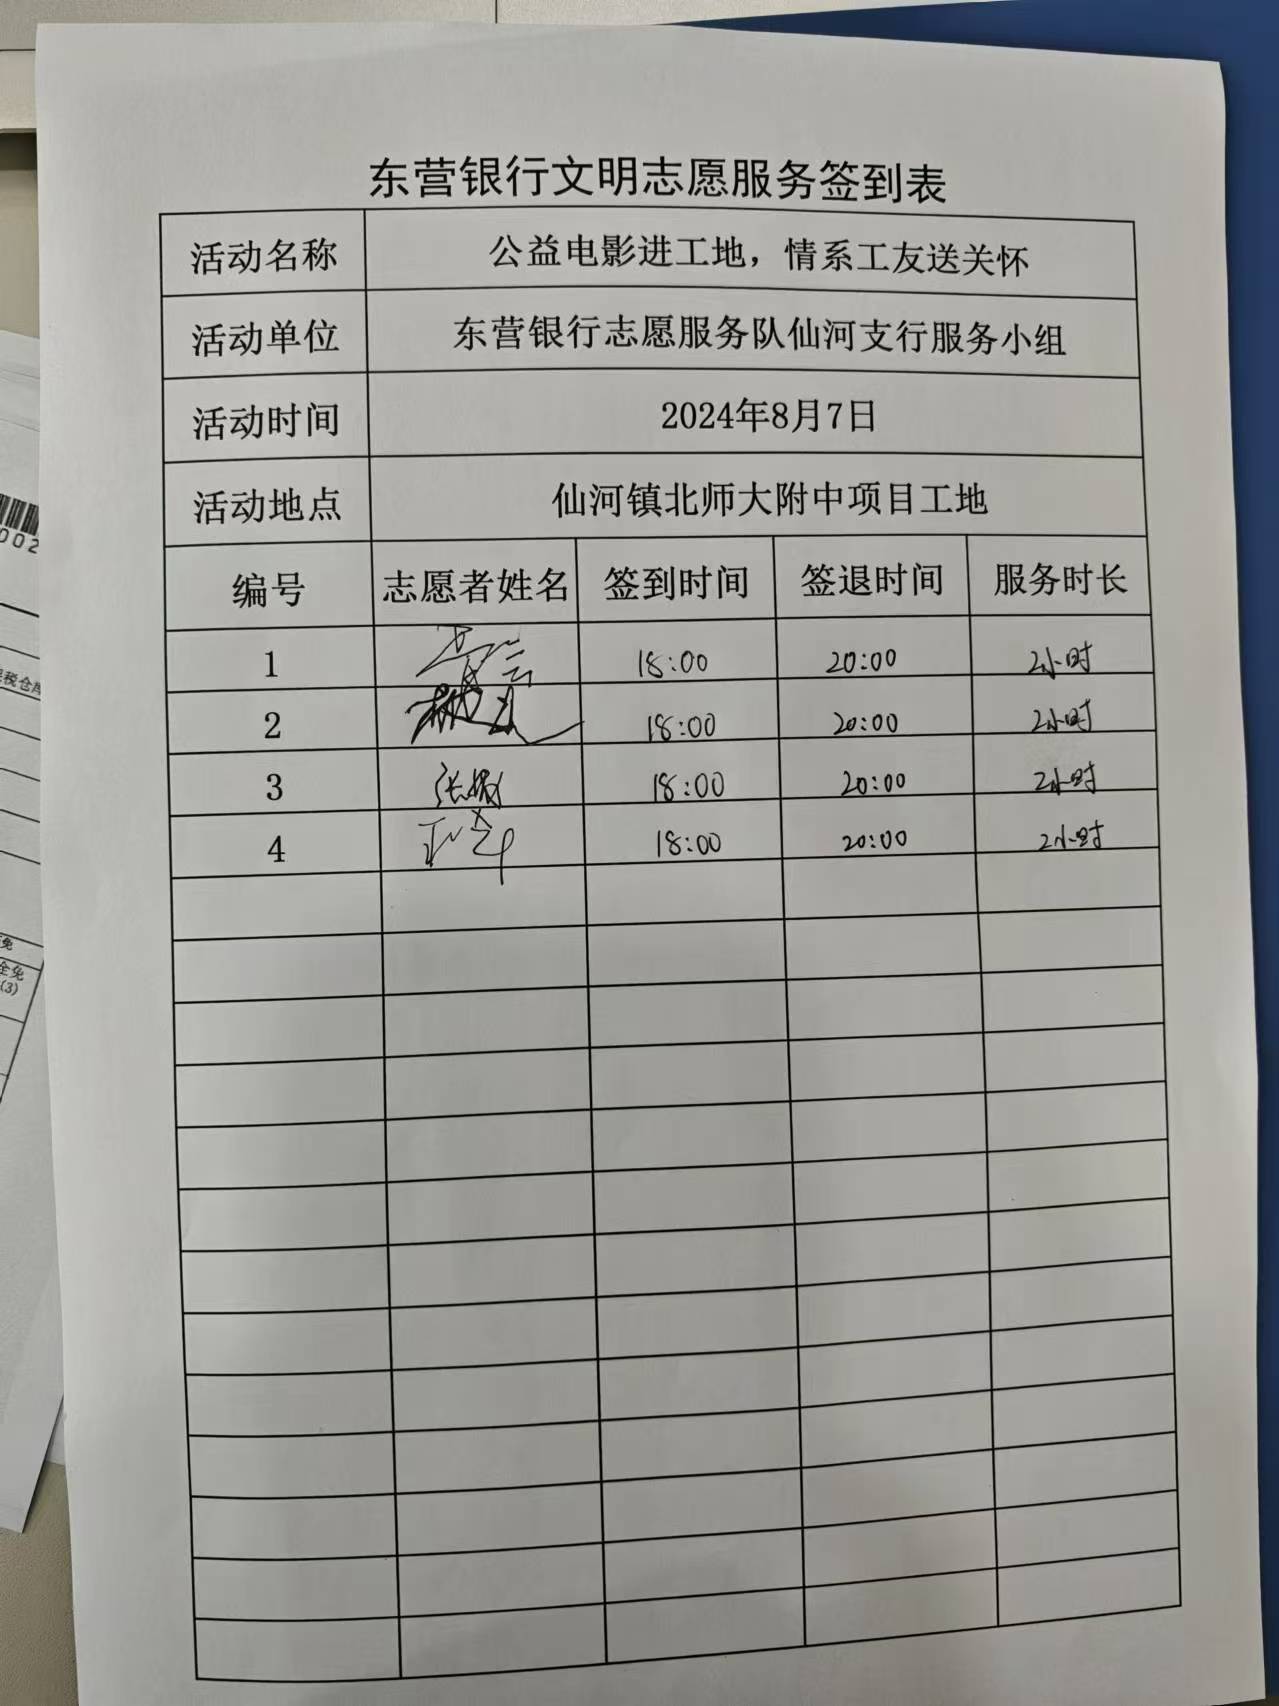 东营银行文明志愿服务签到表
活动名称 公益电影进工地，情系工友送关怀
活动单位 东营银行志愿服务队仙河支行服务小组
活动时间 2024年8月7日
活动地点 仙河镇北师大附中项目工地
编号 志愿者姓名 签到时间 签退时间 服务时长
1 18:00 20:00 2小时
2 18:00 20:00 2小时
3 18:00 20:00 2小时
4 18:00 20:00 2小时
002
税仓库
免
全免
(3)